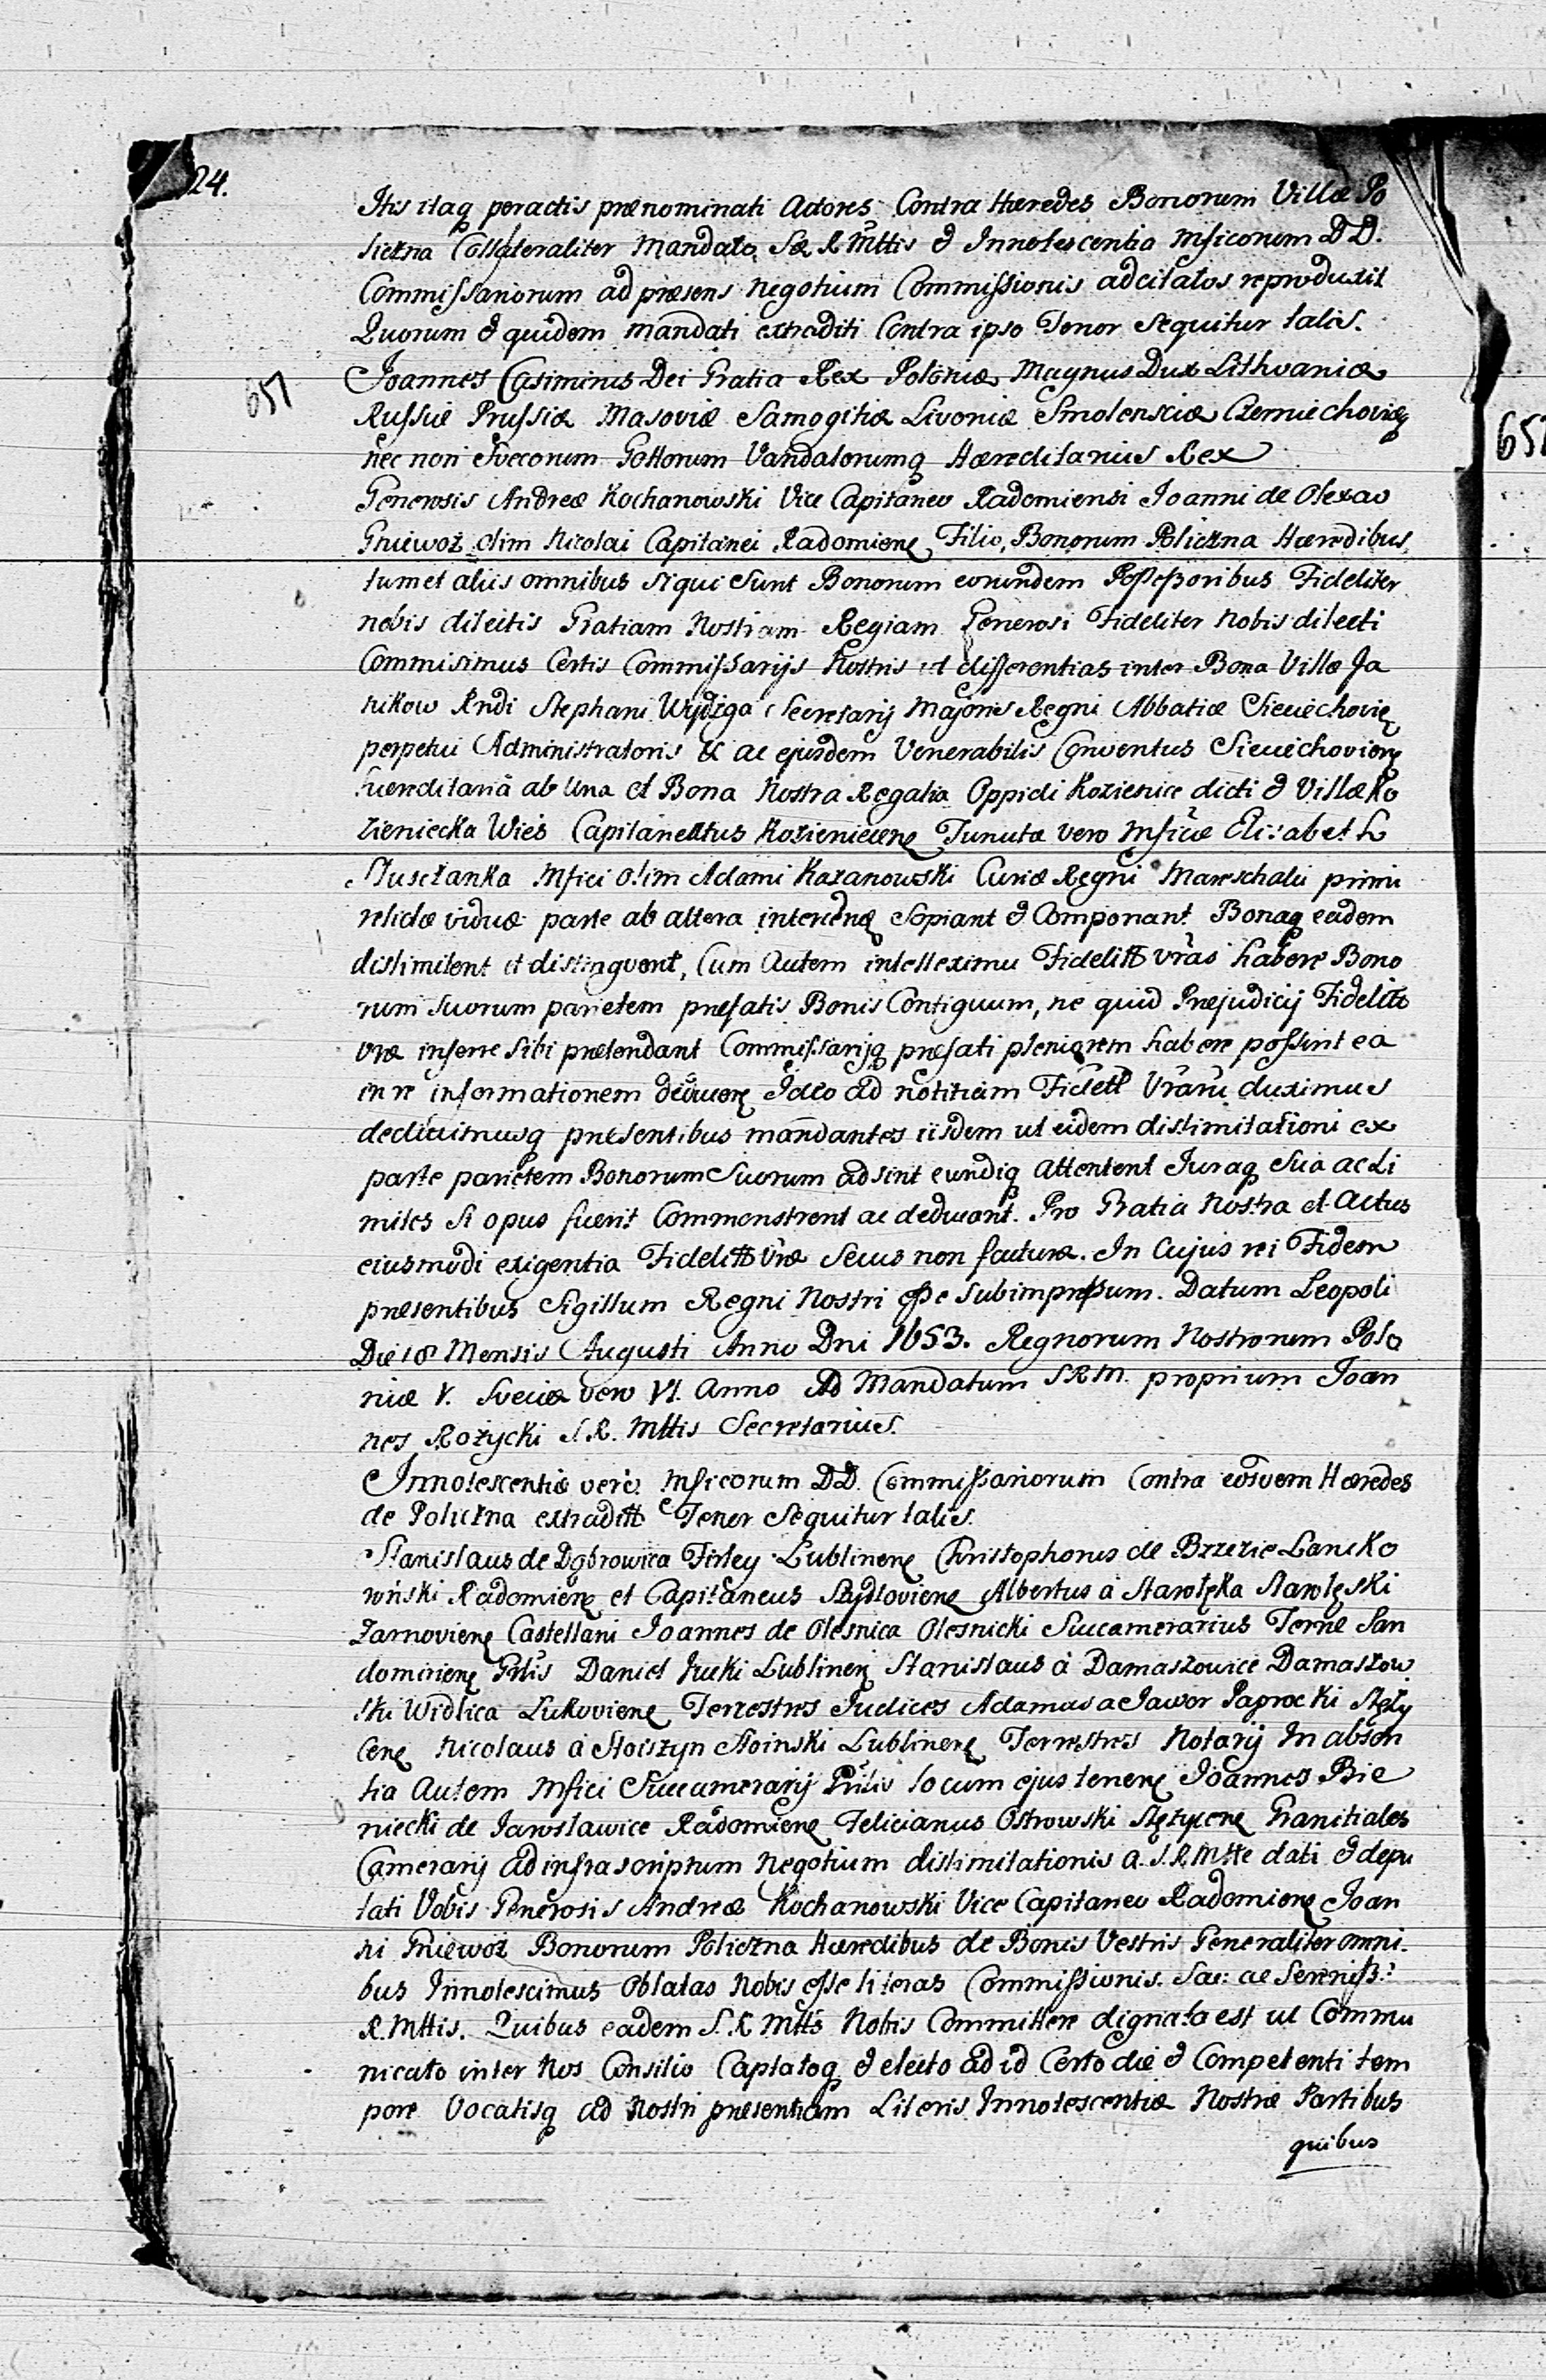 24.
Itis itaq peractis prænominati Actores Contra Hæredes Bonorum Villæ Po
liczna Collateraliter Mandato Sæ R Mttis & Innotescentia Mficorum DD.
Commissariorum ad præsens negotium Commissionis adcitatos reproduxit
Quorum & quidem mandati extraditi Contra ipso Tenor sequitur talis.
657
Joannes Casimirus Dei Gratia Rex Poloniæ Magnus Dux Lithvaniæ
Russiæ Prussiæ Masoviæ Samogitiæ Livoniæ Smolensciæ Czerniechoviæq
nec non Svecorum Gottorum Vandalorumq Hæreditarius Rex
Generosis Andreæ Kochanowski Vice Capitaneo Radomiensi Joanni de Olexow
Gniewoz olim Nicolai Capitanei Radomieñ Filio, Bonorum Policzna Hæredibus,
tum et aliis omnibus si qui sunt Bonorum eorundem Possessoribus Fideliter
nobis dilectis Gratiam Nostram Regiam Generosi Fideliter Nobis dilecti
Commisimus Certis Commissarijs Nostris ut differentias inter Bona Villæ Ja
nikow Rndi Stephani Wydzga Secretarij Majoris Regni Abbatiæ Sieciechovieñ
perpetui Administratoris & ac ejusdem Venerabilis Conventus Sieciechovieñ
hæreditaria ab una et Bona Nostra Regalia Oppidi Kozienice dicti & Villæ Ko
zieniecka Wies Capitaneatus Kozieniceñ Tenutæ vero Mficæ Elizabeth
Sluszczanka Mfici olim Adami Kazanowski Curiæ Regni Mareschalci primi
relictæ viduæ parte ab altera interceñ Sopiant & Componant Bonaq eadem
dislimitent et distinguent, Cum Autem intelleximu Fidelitt vras habere Bono
rum Suorum parietem præfatis Bonis Contiguum, ne quid Præjudicij Fidelitt
vræ inferre sibi prætendant Commissarijq præfati pleniorem habere possint ea
in re informationem Ideo ad notitiam Fidelit Vraru duximus
deducimusq præsentibus mandantes iisdem ut eidem dislimitationi ex
parte parietem Bonorum Suorum adsint eundiq attentent Juraq sua ac Li
mites si opus fuerit Commonstrent ac deducant. Pro Gratia Nostra et Actus
eiusmodi exigentia Fidelitt Vræ secus non facturæ. In Cujus rei Fidem
præsentibus Sigillum Regni Nostri esse subimpressum. Datum Leopoli
Die 18 Mensis Augusti Anno Dni 1653. Regnorum Nostrorum Polo
niæ V. Sveciæ vero VI. Anno Ad Mandatum S.R.M. proprium Joan
nes Rożycki S.R. Mttis Secretarius.
Innotescentiæ vero Mficorum DD. Commissariorum Contra eosvem Hæredes
de Policzna extraditt Tenor Sequitur talis.
Stanislaus de Dąbrowica Firley Lublineñ Christophorus de Brzezie Lancko
roński Radomieñ et Capitaneus Stydlovieñ Albertus à Starołęka Starołęski
Zarnovieñ Castellani Joannes de Olesnica Olesnicki Succamerarius Terræ San
domirieñ Gnlis Daniel Jucki Lublineñ Stanislaus à Damaszowice Damaszow
ski Widlica Lukovieñ Terrestres Judices Adamus a Jawor Paprocki Stęży
ceñ Nicolaus à Stoiszyn Stoinski Lublineñ Terrestres Notarij In absen
tia Autem Mfici Succamerarij locum ejus teneñ Joannes Bie
niecki de Jarosławice Radomieñ Felicianus Ostrowski Stężyceñ Granitiales
Camerarij ad infrascriptum Negotium dislimitationis a S.R.Mtte dati & depu
tati Vobis Generosis Andreæ Kochanowski Vice Capitaneo Radomieñ Joan
ni Gniewoz Bonorum Policzna Hæredibus de Bonis Vestris Generaliter omni
bus Innotescimus Oblatas Nobis esse literas Commissionis Sac: ac Sereniss:
R.Mttis. Quibus eadem S.R Mtts Nobis Committere dignata est ut Commu
nicato inter Nos Consilio Captatoq & electo ad id Certo die & Competenti tem
pore Vocatisq ad Nostri præsentiam Literis Innotescentiæ Nostræ Partibus
quibus